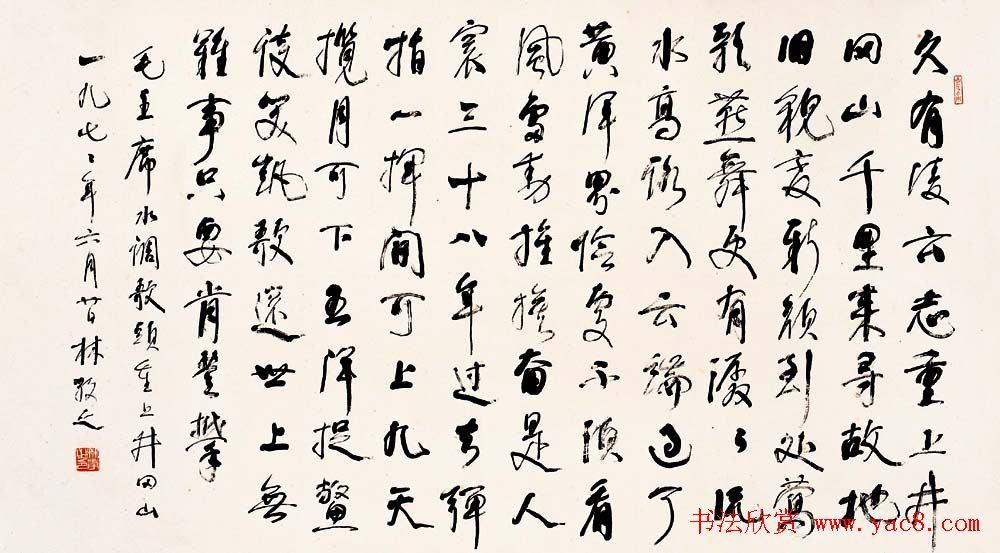 久有凌云志重上井
冈山千里来寻故地
旧貌变新颜到处莺
歌燕舞更有潺々流
水高路入云端过了
黄洋界险处不须看
風雷动旌旗奋是人
寰三十八年过去弹
指一挥间可上九天
揽月可下五洋捉鳖
谈笑凯歌還世上無
難事只要肯登攀
毛主席水调歌头重上井冈山
一九七々年六月廿日林散之
书法欣赏 www.yac8.com